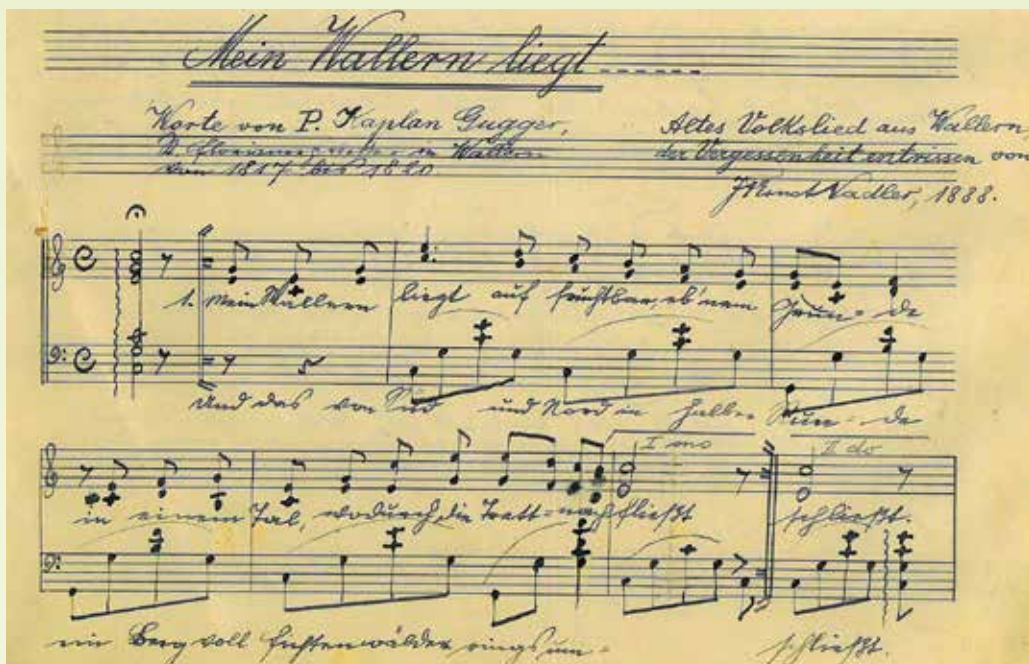 Mein Wallern liegt ......
Worte von P. Kaplan Gugger,
St. Florianer in Wallern
von 1817 bis 1820.
Altes Volkslied aus Wallern,
der Vergessenheit entrissen von
Ernst Nadler, 1888.
1. Mein Wallern liegt auf fruchtbar, eb'nem Grun- de
Und das von Süd und Nord in halber Run- de
I mo II do
in einem Tal, wodurch die Tratt=nach fließt schließt.
ein Berg voll Fichtenwälder rings um- schließt.